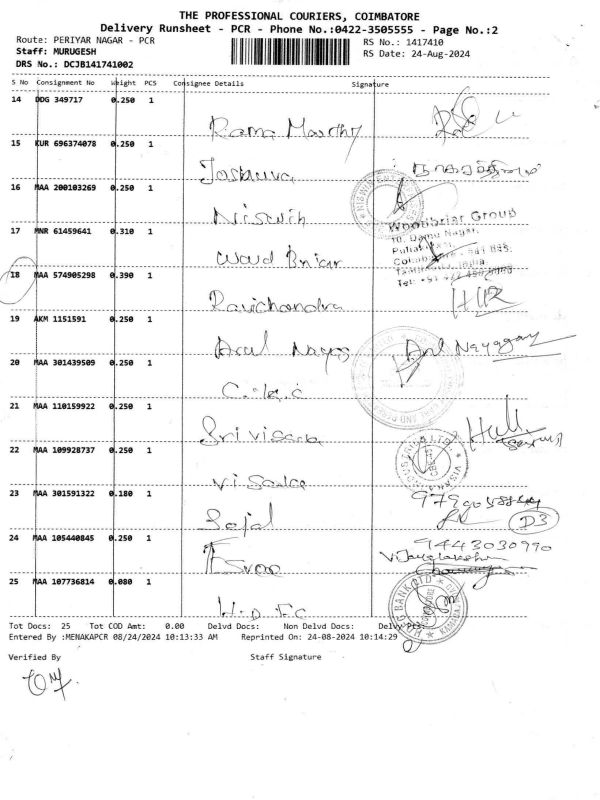 THE PROFESSIONAL COURIERS, COIMBATORE
Delivery Runsheet - PCR - Phone No.:0422-3505555 - Page No.:2
Route: PERIYAR NAGAR - PCR
RS No.: 1417410
Staff: MURUGESH
RS Date: 24-Aug-2024
DRS No.: DCJB141741002
S No Consignment No Weight PCS Consignee Details Signature
14 DDG 349717 0.250 1
Rama Moorthy
15 KUR 696374078 0.250 1
Joshuva
16 MAA 200103269 0.250 1
Niswin
17 MNR 61459641 0.310 1
Woodbriar Group
10, Damu Nagar,
Wood Briar
18 MAA 574905298 0.390 1
Ravichandra
19 AKM 1151591 0.250 1
Arul Nayag
Arul Nayagay
20 MAA 301439509 0.250 1
21 MAA 110159922 0.250 1
22 MAA 109928737 0.250 1
23 MAA 301591322 0.180 1
Sojal
D3
24 MAA 105440845 0.250 1
9443030990
25 MAA 107736814 0.080 1
Tot Docs: 25 Tot COD Amt: 0.00 Delvd Docs: Non Delvd Docs: Delvy Pts:
Entered By :MENAKAPCR 08/24/2024 10:13:33 AM Reprinted On: 24-08-2024 10:14:29
Verified By Staff Signature